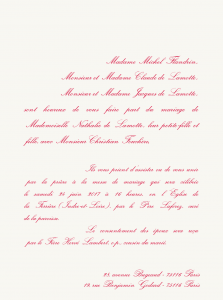 Madame Michel Flandrin,
Monsieur et Madame Claude de Lamotte,
Monsieur et Madame Jacques de Lamotte,
sont heureux de vous faire part du mariage de
Mademoiselle Nathalie de Lamotte, leur petite-fille et
fille, avec Monsieur Christian
Ils vous prient d'assister ou de vous unir
par la prière à la messe de mariage qui sera célébrée
le samedi 20 juin 1987 à 16 heures, en l'Eglise de
la (Indre-et-Loire), par le Père ami
de la paroisse.
Le consentement des époux sera reçu
par le Père Hervé Lambert, o.p., cousin du marié.
avenue - 75116 Paris
19, rue Benjamin Godard - 75116 Paris